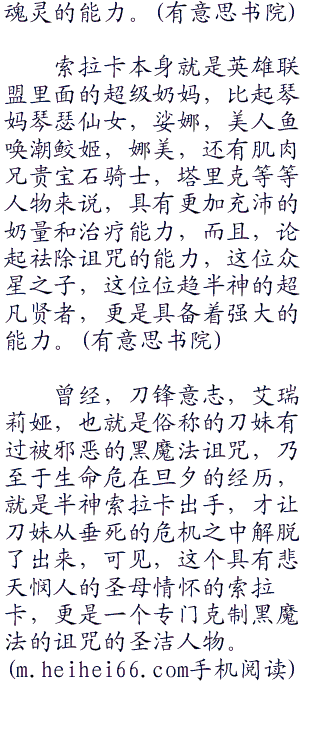 魂灵的能力。(有意思书院)
索拉卡本身就是英雄联
盟里面的超级奶妈，比起琴
妈琴瑟仙女，娑娜，美人鱼
唤潮鲛姬，娜美，还有肌肉
兄贵宝石骑士，塔里克等等
人物来说，具有更加充沛的
奶量和治疗能力，而且，论
起祛除诅咒的能力，这位众
星之子，这位位趋半神的超
凡贤者，更是具备着强大的
能力。(有意思书院)
曾经，刀锋意志，艾瑞
莉娅，也就是俗称的刀妹有
过被邪恶的黑魔法诅咒，乃
至于生命危在旦夕的经历，
就是半神索拉卡出手，才让
刀妹从垂死的危机之中解脱
了出来，可见，这个具有悲
天悯人的圣母情怀的索拉
卡，更是一个专门克制黑魔
法的诅咒的圣洁人物。
(m.heihei66.com手机阅读)